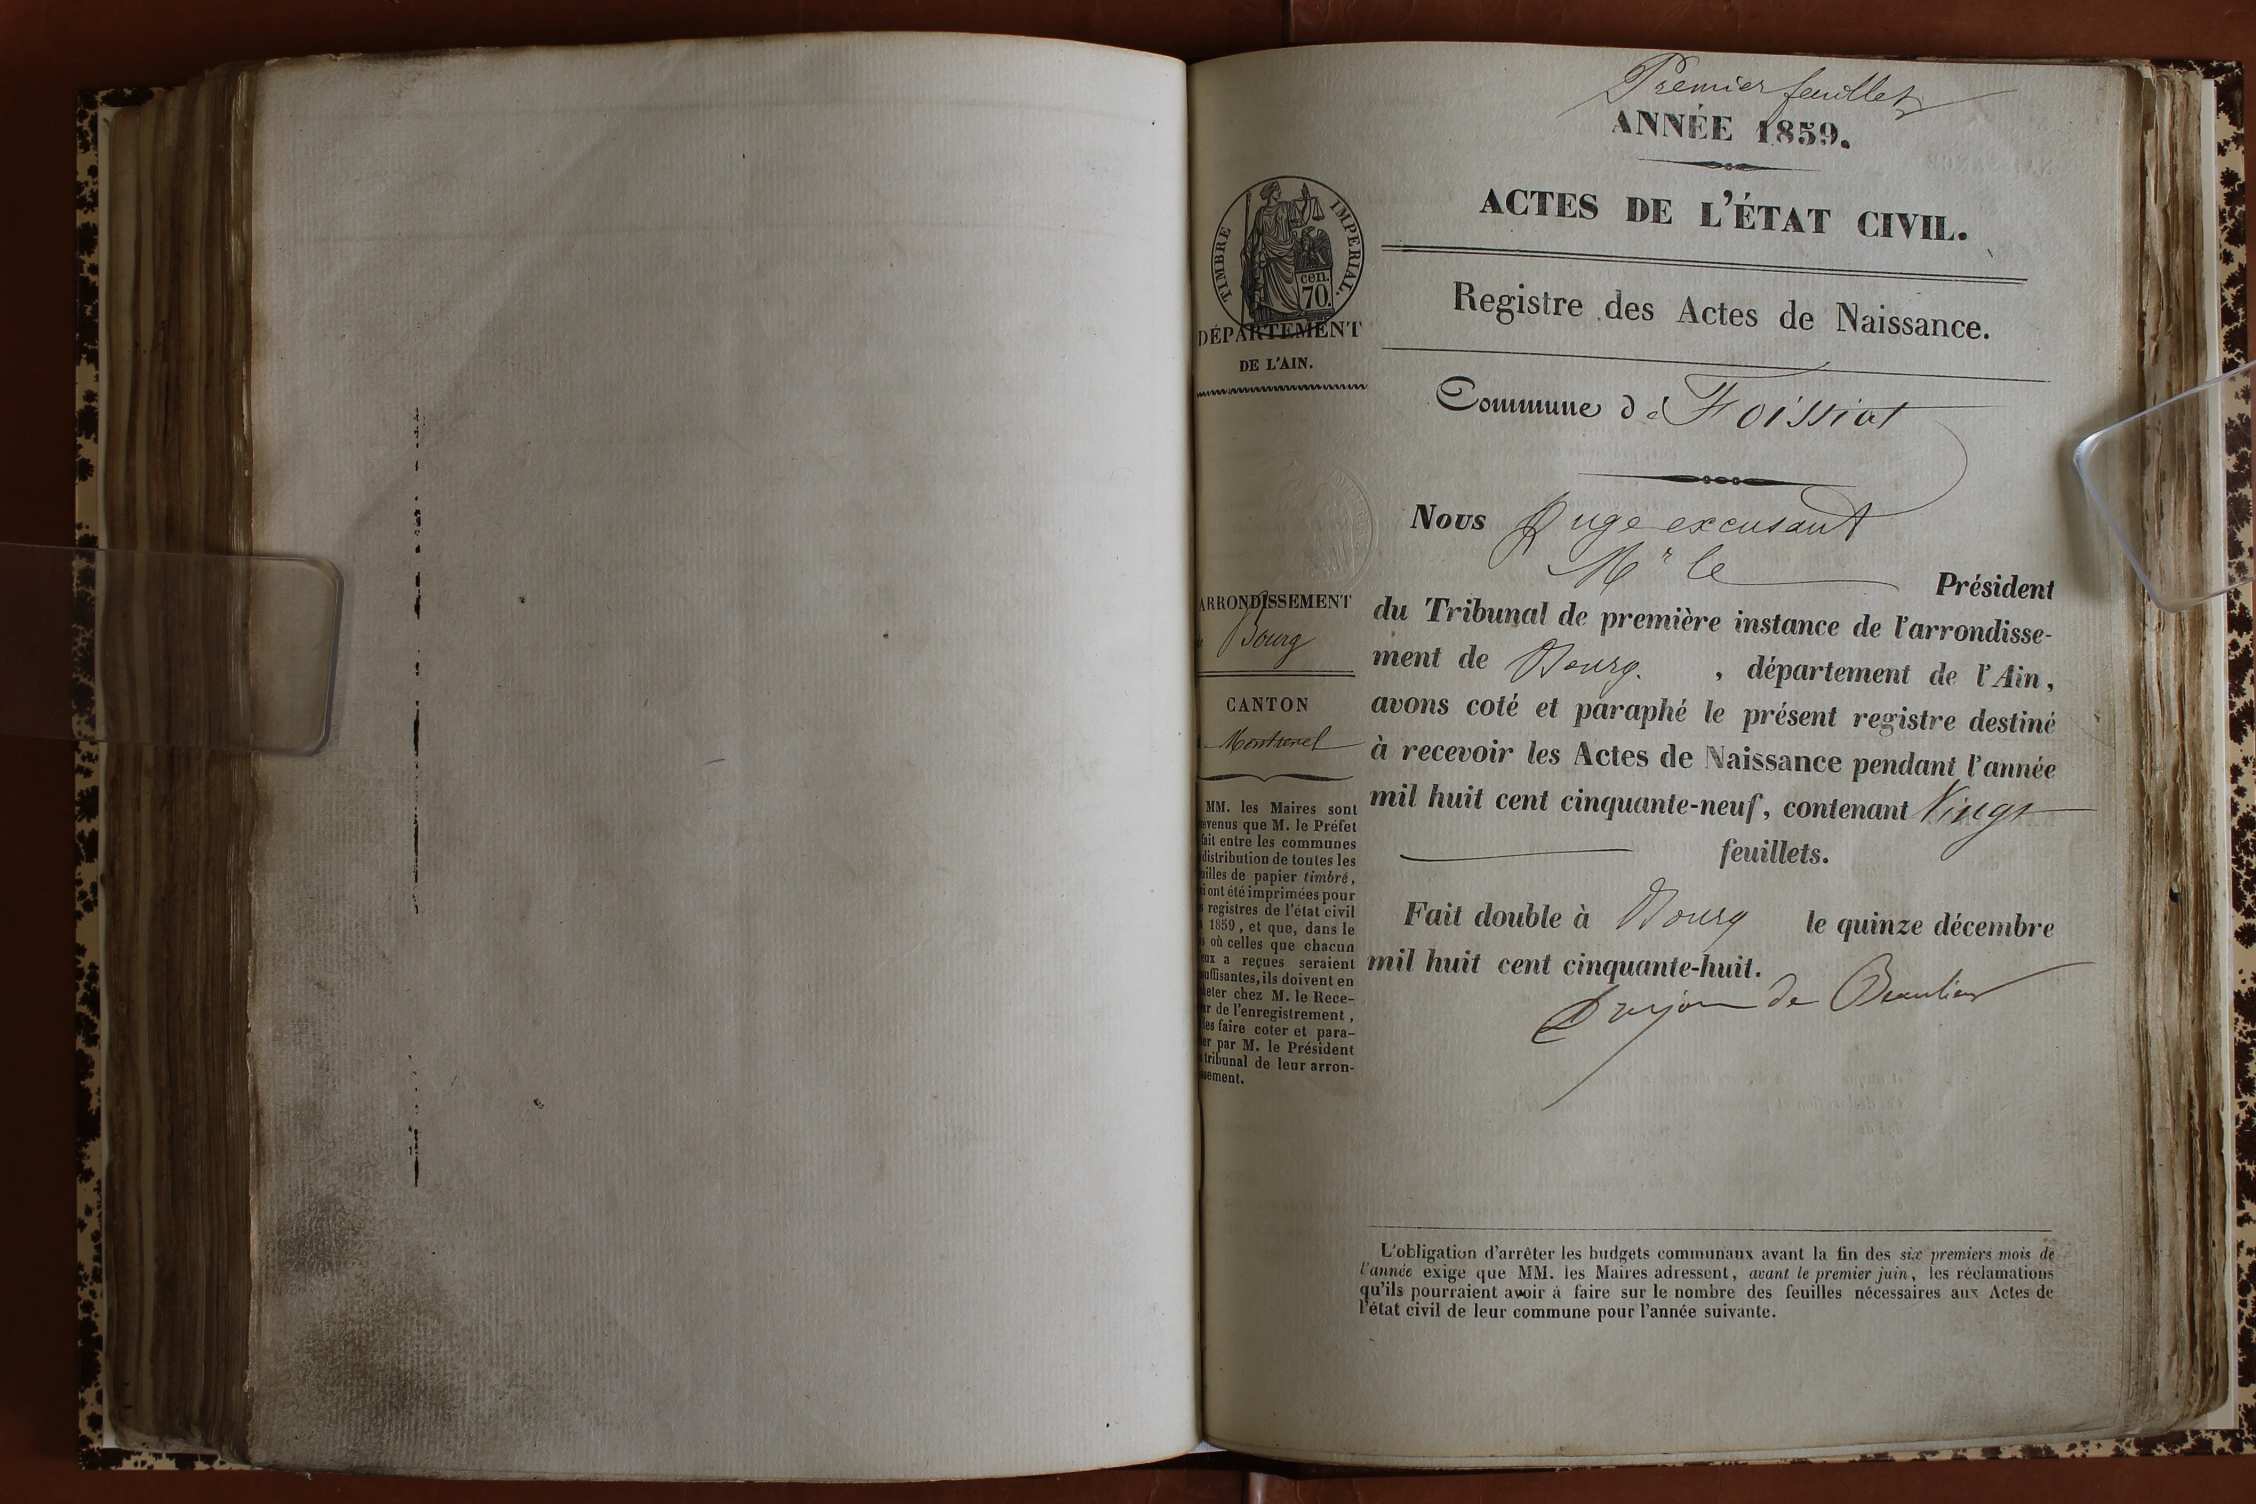 Premier feuillet
ANNÉE 1859.
ACTES DE L'ÉTAT CIVIL.
Registre des Actes de Naissance.
TIMBRE IMPERIAL.
cen.
70.
DÉPARTEMENT
DE L'AIN.
Commune de Foissiat
Nous Juge excusant
Mr le Président
du Tribunal de première instance de l'arrondisse-
ment de Bourg. , département de l'Ain,
avons coté et paraphé le présent registre destiné
à recevoir les Actes de Naissance pendant l'année
mil huit cent cinquante-neuf, contenant Vingt
feuillets.
Fait double à Bourg le quinze décembre
mil huit cent cinquante-huit.
de Beaulieu
ARRONDISSEMENT
Bourg
CANTON
Montrevel
MM. les Maires sont
evenus que M. le Préfet
fait entre les communes
distribution de toutes les
uilles de papier timbré,
i ont été imprimées pour
s registres de l'état civil
1859, et que, dans le
s où celles que chacun
eux a reçues seraient
uffisantes, ils doivent en
heter chez M. le Rece-
ur de l'enregistrement,
les faire coter et para-
er par M. le Président
tribunal de leur arron-
ssement.
L'obligation d'arrêter les budgets communaux avant la fin des six premiers mois de
l'année exige que MM. les Maires adressent, avant le premier juin, les réclamations
qu'ils pourraient avoir à faire sur le nombre des feuilles nécessaires aux Actes de
l'état civil de leur commune pour l'année suivante.